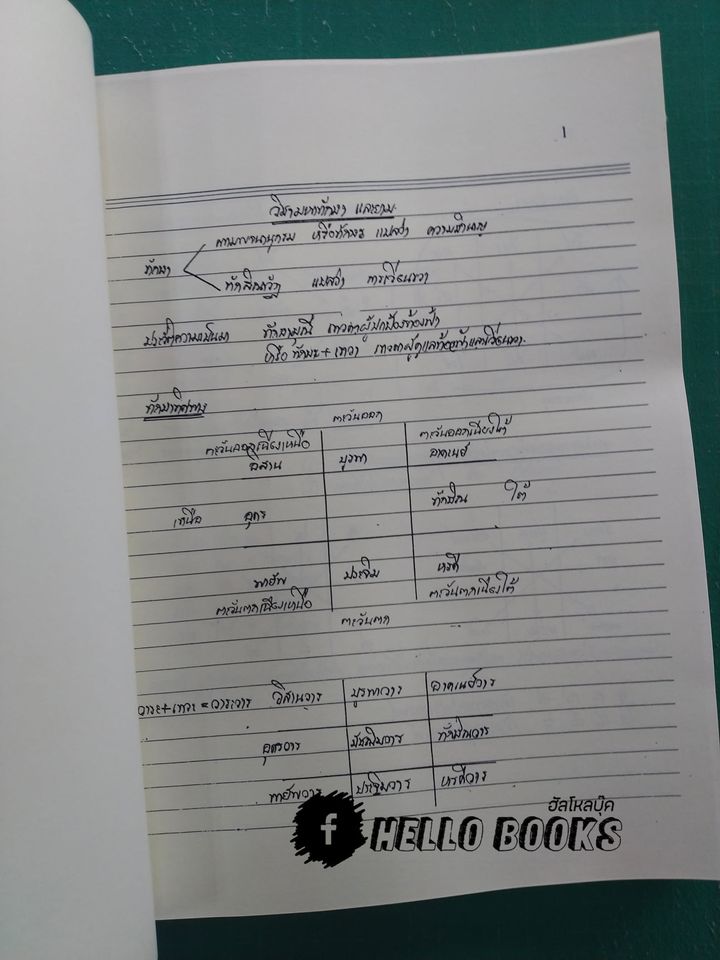 1
วิชามหาทักษา และยาม
ตามพจนานุกรม หรือทักษะ แปลว่า ความชำนาญ
ทักษา
ทักสิณาวัฏ แปลว่า การเวียนขวา
ประวัติความเป็นมา ทักษามุณี เทวดาผู้ปกป้องท้องฟ้า
หรือ ทักษะ + เทวา เทวดาผู้ดูแลท้องฟ้าและเวียนขวา
ทักษาทิศทาง
ตะวันออก
ตะวันออกเฉียงเหนือ ตะวันออกเฉียงใต้
อิสาน บูรพา อาคเนย์
เหนือ อุดร ทักษิณ ใต้
พายัพ ประจิม หรดี
ตะวันตกเฉียงเหนือ ตะวันตกเฉียงใต้
ตะวันตก
วาระ+เทวะ = วาระวาร วิสานวาร บูรพาวาร อาคเนย์วาร
อุดรวาร มัชฌิมวาร ทักษิณวาร
พายัพวาร ประจิมวาร หรดีวาร
ฮัลโหลบุ๊ค
f HELLO BOOKS